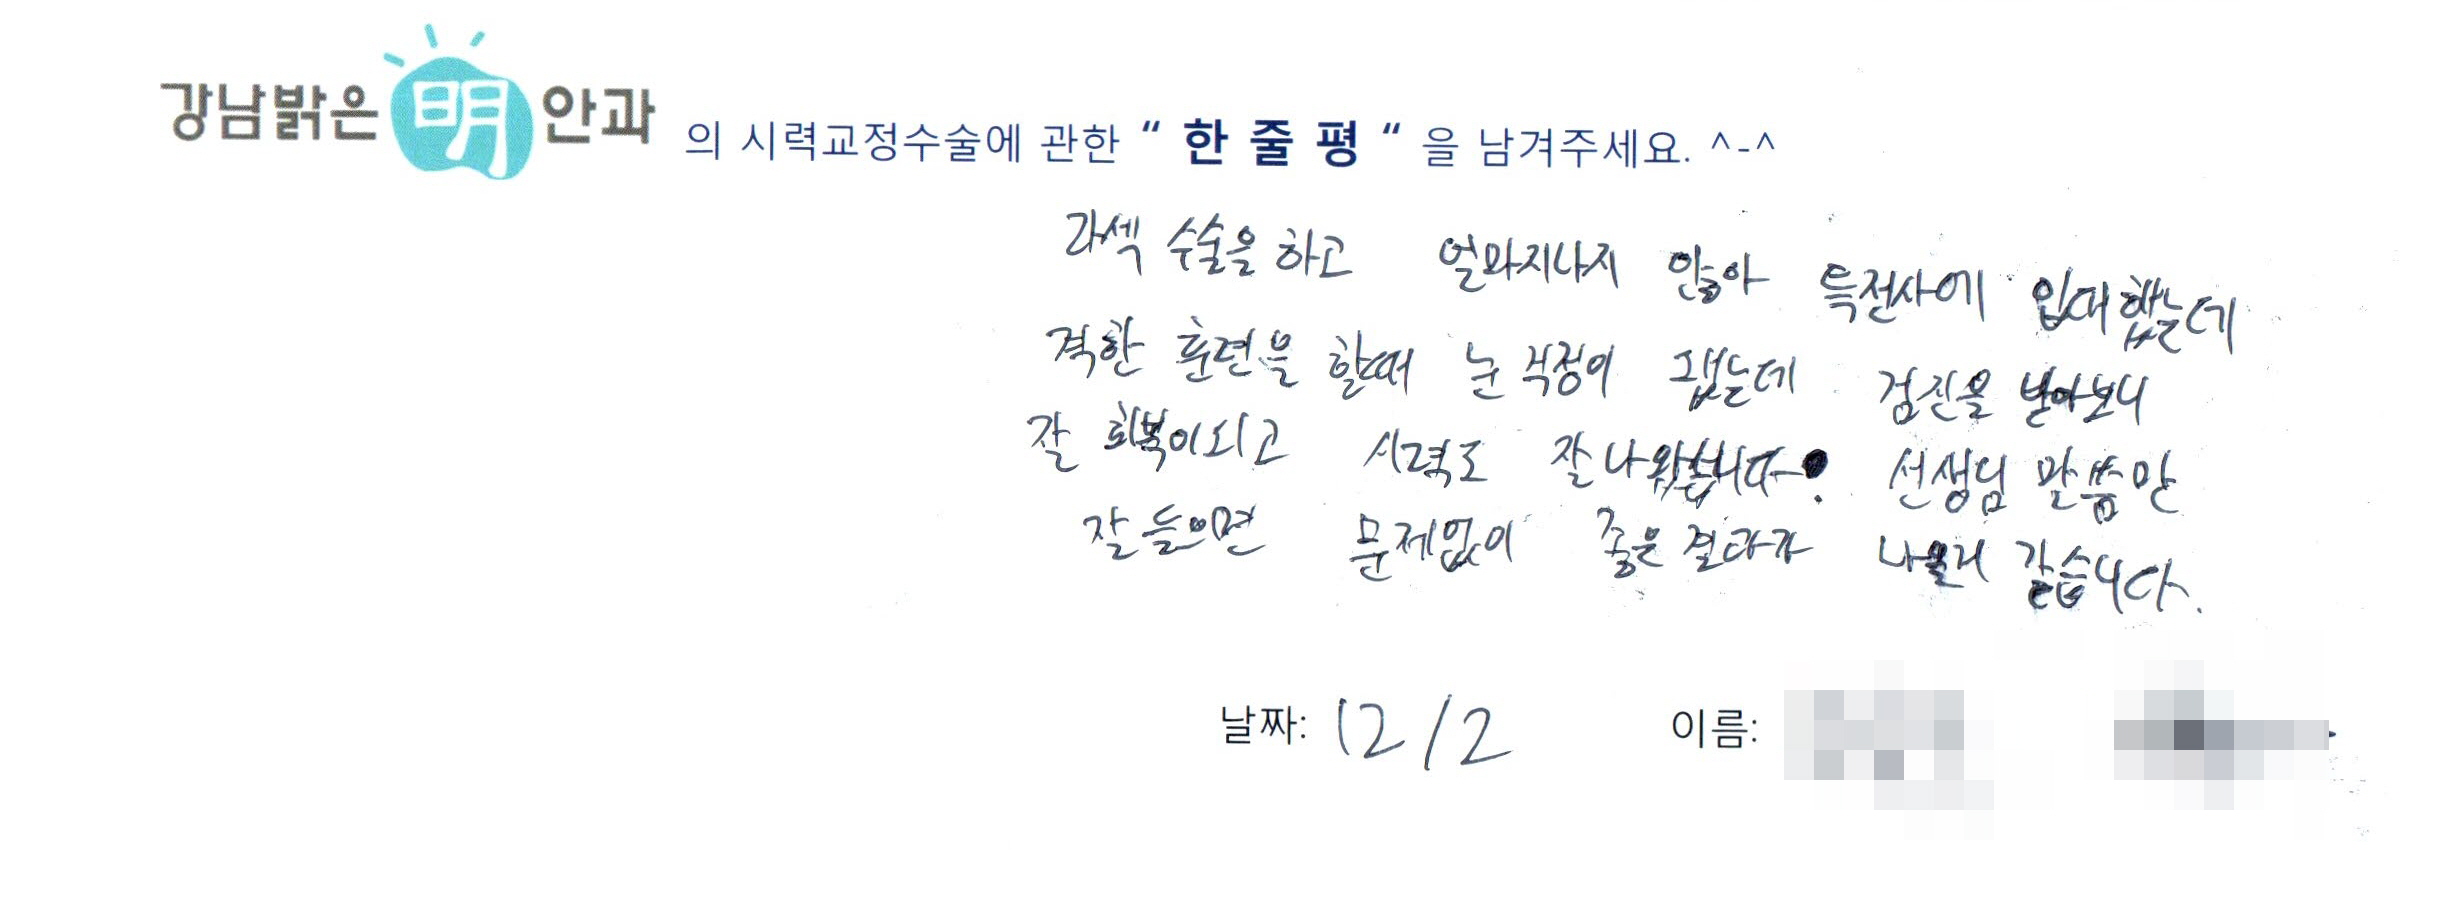 강남밝은 明 안과 의 시력교정수술에 관한 “ 한 줄 평 “ 을 남겨주세요. ^-^
라섹 수술을 하고 얼마지나지 않아 특전사에 입대했는데
격한 훈련을 할때 눈 걱정이 됐는데 검진을 받아보니
잘 회복이되고 시력도 잘 나왔습니다. 선생님 말씀만
잘 들으면 문제없이 좋은 결과가 나올거 같습니다.
날짜: 12/2 이름: